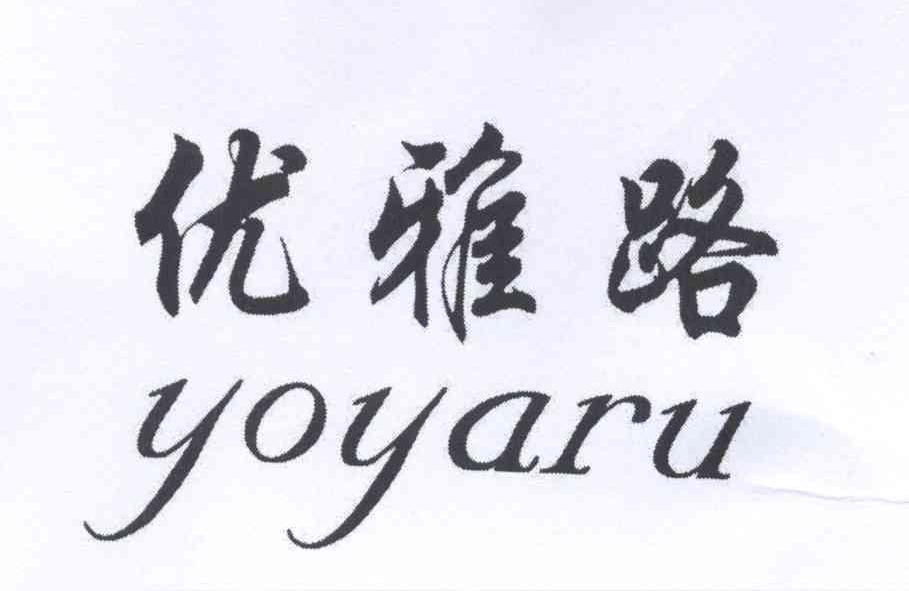 优雅路
yoyaru